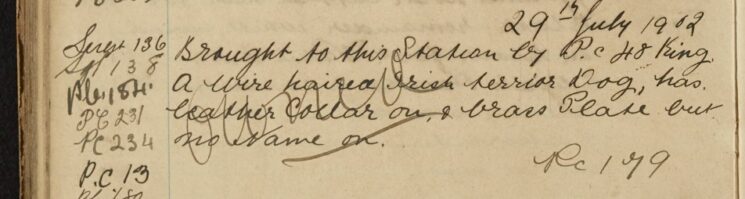 29th July 1902
Sergt 136
Brought to this Station by P.c 48 King.
138
A wire haired Irish terrior Dog, has
leather Collar on, & brass Plate but
PC 231
no name on.
PC 234
Pc 179
P.C 13